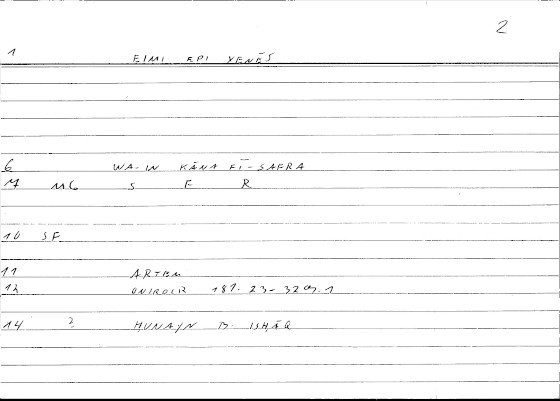 2
1 EIMI EPI XENĒS
6 WA-IN KĀNA FĪ-SAFRA
7 MG S F R
10 SF
11 ARTEM
12 ONIROCR 181. 23-
14 ? ḤUNAYN B. ISḤĀQ